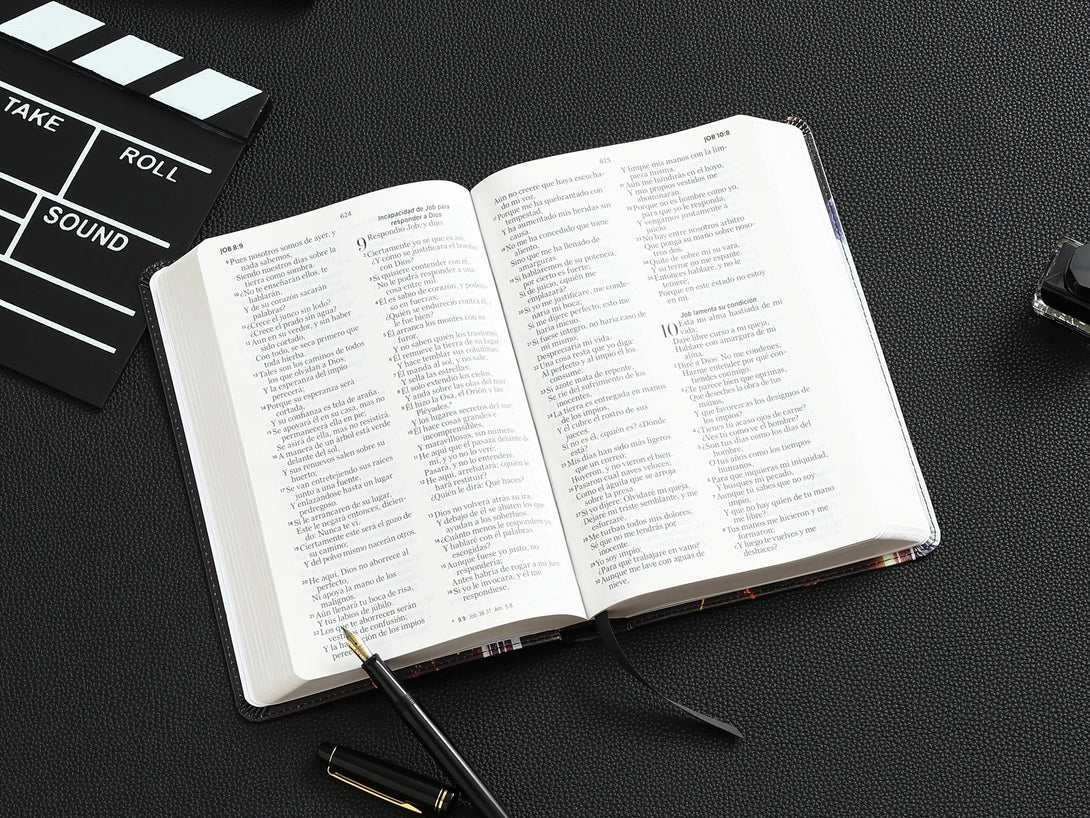 TAKE
ROLL
SOUND
JOB 8:9
624
9 Pues nosotros somos de ayer, y
nada sabemos,
Siendo nuestros días sobre la
tierra como sombra.
10 ¿No te enseñarán ellos, te
hablarán,
Y de su corazón sacarán
palabras?
11 ¿Crece el junco sin lodo?
¿Crece el prado sin agua?
12 Aun en su verdor, y sin haber
sido cortado,
Con todo, se seca primero que
toda hierba.
13 Tales son los caminos de todos
los que olvidan a Dios;
Y la esperanza del impío
perecerá;
14 Porque su esperanza será
cortada,
Y su confianza es tela de araña.
15 Se apoyará él en su casa, mas no
permanecerá ella en pie;
Se asirá de ella, mas no resistirá.
16 A manera de un árbol está verde
delante del sol,
Y sus renuevos salen sobre su
huerto;
17 Se van entretejiendo sus raíces
junto a una fuente,
Y enlazándose hasta un lugar
pedregoso.
18 Si le arrancaren de su lugar,
Este le negará entonces, dicien-
do: Nunca te vi.
19 Ciertamente este será el gozo de
su camino;
Y del polvo mismo nacerán otros.
20 He aquí, Dios no aborrece al
perfecto,
Ni apoya la mano de los
malignos.
21 Aún llenará tu boca de risa,
Y tus labios de júbilo.
22 Los que te aborrecen serán
vestidos de confusión;
Y la habitación de los impíos
Incapacidad de Job para
responder a Dios
9 Respondió Job, y dijo:
2 Ciertamente yo sé que es así;
¿Y cómo se justificará el hombre
con Dios?
3 Si quisiere contender con él,
No le podrá responder a una
cosa entre mil.
4 Él es sabio de corazón, y poderoso
en fuerzas;
¿Quién se endureció contra él, y
le fue bien?
5 Él arranca los montes con su
furor,
Y no saben quién los trastornó;
6 Él remueve la tierra de su lugar,
Y hace temblar sus columnas;
7 Él manda al sol, y no sale;
Y sella las estrellas;
8 Él solo extendió los cielos,
Y anda sobre las olas del mar;
9 Él hizo la Osa, el Orión y las
Pléyades,
Y los lugares secretos del sur;
10 Él hace cosas grandes e
incomprensibles,
Y maravillosas, sin número.
11 He aquí que él pasará delante de
mí, y yo no lo veré;
Pasará, y no lo entenderé.
12 He aquí, arrebatará; ¿quién le
hará restituir?
¿Quién le dirá: Qué haces?
13 Dios no volverá atrás su ira,
Y debajo de él se abaten los que
ayudan a los soberbios.
14 ¿Cuánto menos le responderé yo,
Y hablaré con él palabras
escogidas?
15 Aunque fuese yo justo, no
respondería;
Antes habría de rogar a mi juez.
16 Si yo le invocara, y él me
respondiese,
9:9: Job 38.31; Am. 5:8.
625
JOB 10:8
Aún no creeré que haya escucha-
do mi voz.
17 Porque me ha quebrantado con
tempestad,
Y ha aumentado mis heridas sin
causa.
18 No me ha concedido que tome
aliento,
Sino que me ha llenado de
amarguras.
19 Si habláremos de su potencia,
por cierto es fuerte;
Si de juicio, ¿quién me
emplazará?
20 Si yo me justificare, me conde-
naría mi boca;
Si me dijere perfecto, esto me
haría inicuo.
21 Si fuese íntegro, no haría caso de
mí mismo;
Despreciaría mi vida.
22 Una cosa resta que yo diga:
Al perfecto y al impío él los
consume.
23 Si azote mata de repente,
Se ríe del sufrimiento de los
inocentes.
24 La tierra es entregada en manos
de los impíos,
Y él cubre el rostro de sus
jueces.
Si no es él, ¿quién es? ¿Dónde
está?
25 Mis días han sido más ligeros
que un correo;
Huyeron, y no vieron el bien.
26 Pasaron cual naves veloces;
Como el águila que se arroja
sobre la presa.
27 Si yo dijere: Olvidaré mi queja,
Dejaré mi triste semblante, y me
esforzaré,
28 Me turban todos mis dolores;
Sé que no me tendrás por
inocente.
29 Yo soy impío;
¿Para qué trabajaré en vano?
30 Aunque me lave con aguas de
nieve,
Y limpie mis manos con la lim-
pieza misma,
31 Aún me hundirás en el hoyo,
Y mis propios vestidos me
abominarán.
32 Porque no es hombre como yo,
para que yo le responda,
Y vengamos juntamente a
juicio.
33 No hay entre nosotros árbitro
Que ponga su mano sobre noso-
tros dos.
34 Quite de sobre mí su vara,
Y su terror no me espante.
35 Entonces hablaré, y no le
temeré;
Porque en este estado no estoy
en mí.
Job lamenta su condición
10 Está mi alma hastiada de mi
vida;
Daré libre curso a mi queja,
Hablaré con amargura de mi
alma.
2 Diré a Dios: No me condenes;
Hazme entender por qué con-
tiendes conmigo.
3 ¿Te parece bien que oprimas,
Que deseches la obra de tus
manos,
Y que favorezcas los designios de
los impíos?
4 ¿Tienes tú acaso ojos de carne?
¿Ves tú como ve el hombre?
5 ¿Son tus días como los días del
hombre,
O tus años como los tiempos
humanos,
6 Para que inquieras mi iniquidad,
Y busques mi pecado,
7 Aunque tú sabes que no soy
impío,
Y que no hay quien de tu mano
me libre?
8 Tus manos me hicieron y me
formaron;
¿Y luego te vuelves y me
deshaces?